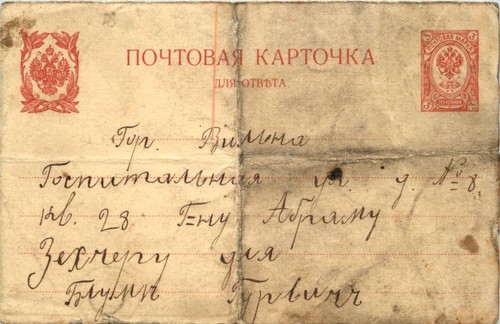 ПОЧТОВАЯ КАРТОЧКА
ДЛЯ ОТВѢТА
Гор. Вильна
Госпитальная ул. д. № 8,
кв. 28 Г=ну Абраму
Зехчеру для
Блумы Гурвичъ